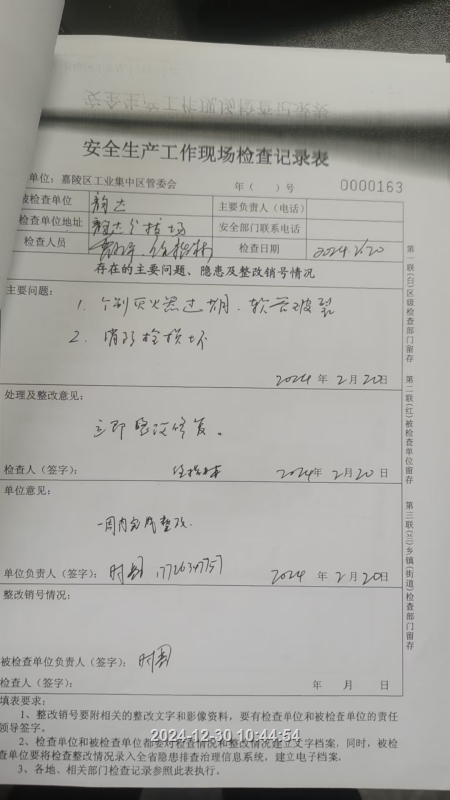 安全生产工作现场检查记录表
单位：嘉陵区工业集中区管委会 年（ ）号 0000163
被检查单位 韵达 主要负责人（电话）
检查单位地址 韵达分拨场 安全部门联系电话
检查人员 检查日期 2024.2.20
存在的主要问题、隐患及整改销号情况
主要问题：
1. 个别灭火器过期、软管破裂
2. 消防栓损坏
2024年2月20日
处理及整改意见：
立即整改修复。
检查人（签字）： 2024年2月20日
单位意见：
一周内完成整改.
单位负责人（签字）： 2024年2月20日
整改销号情况：
被检查单位负责人（签字）：
检查人（签字）： 年 月 日
填表要求：
1、整改销号要附相关的整改文字和影像资料，要有检查单位和被检查单位的责任
领导签字。
2、检查单位和被检查单位都要对检查情况和整改情况建立文字档案，同时，被检
查单位要将检查整改情况录入全省隐患排查治理信息系统，建立电子档案．
3、各地、相关部门检查记录参照此表执行。
第一联（白）区级检查部门留存
第二联（红）被检查单位留存
第三联（兰）乡镇（街道）检查部门留存
2024-12-30 10:44:54